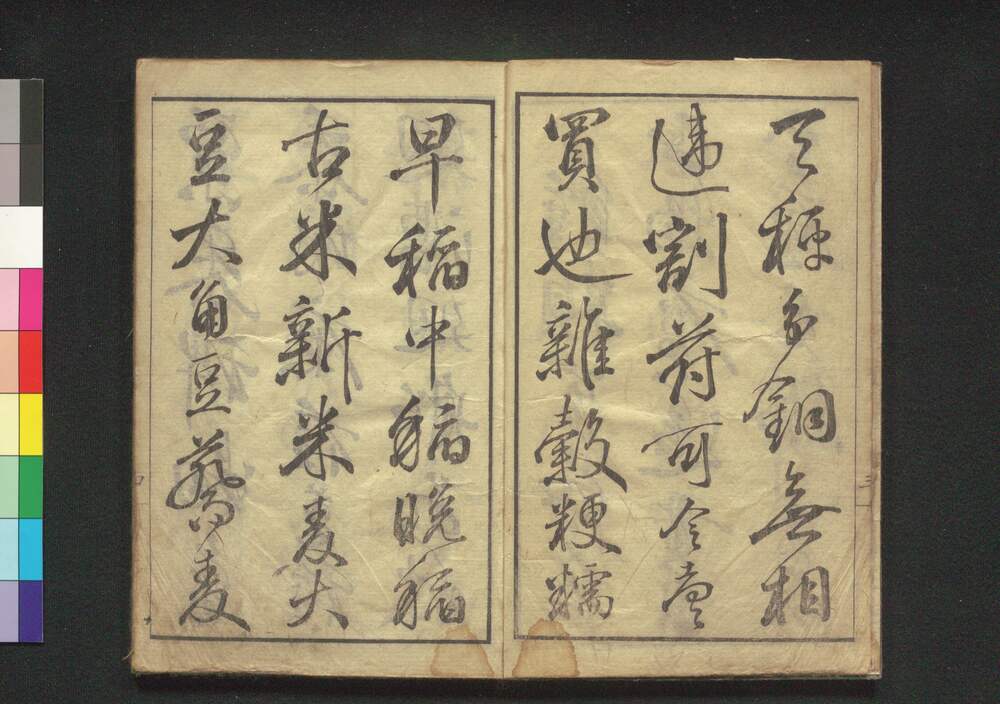 天秤分銅無相
違割苻可令売
買也雜穀粳糯
早稲中稲晩稲
古米新米麦大
豆大角豆蕎麦